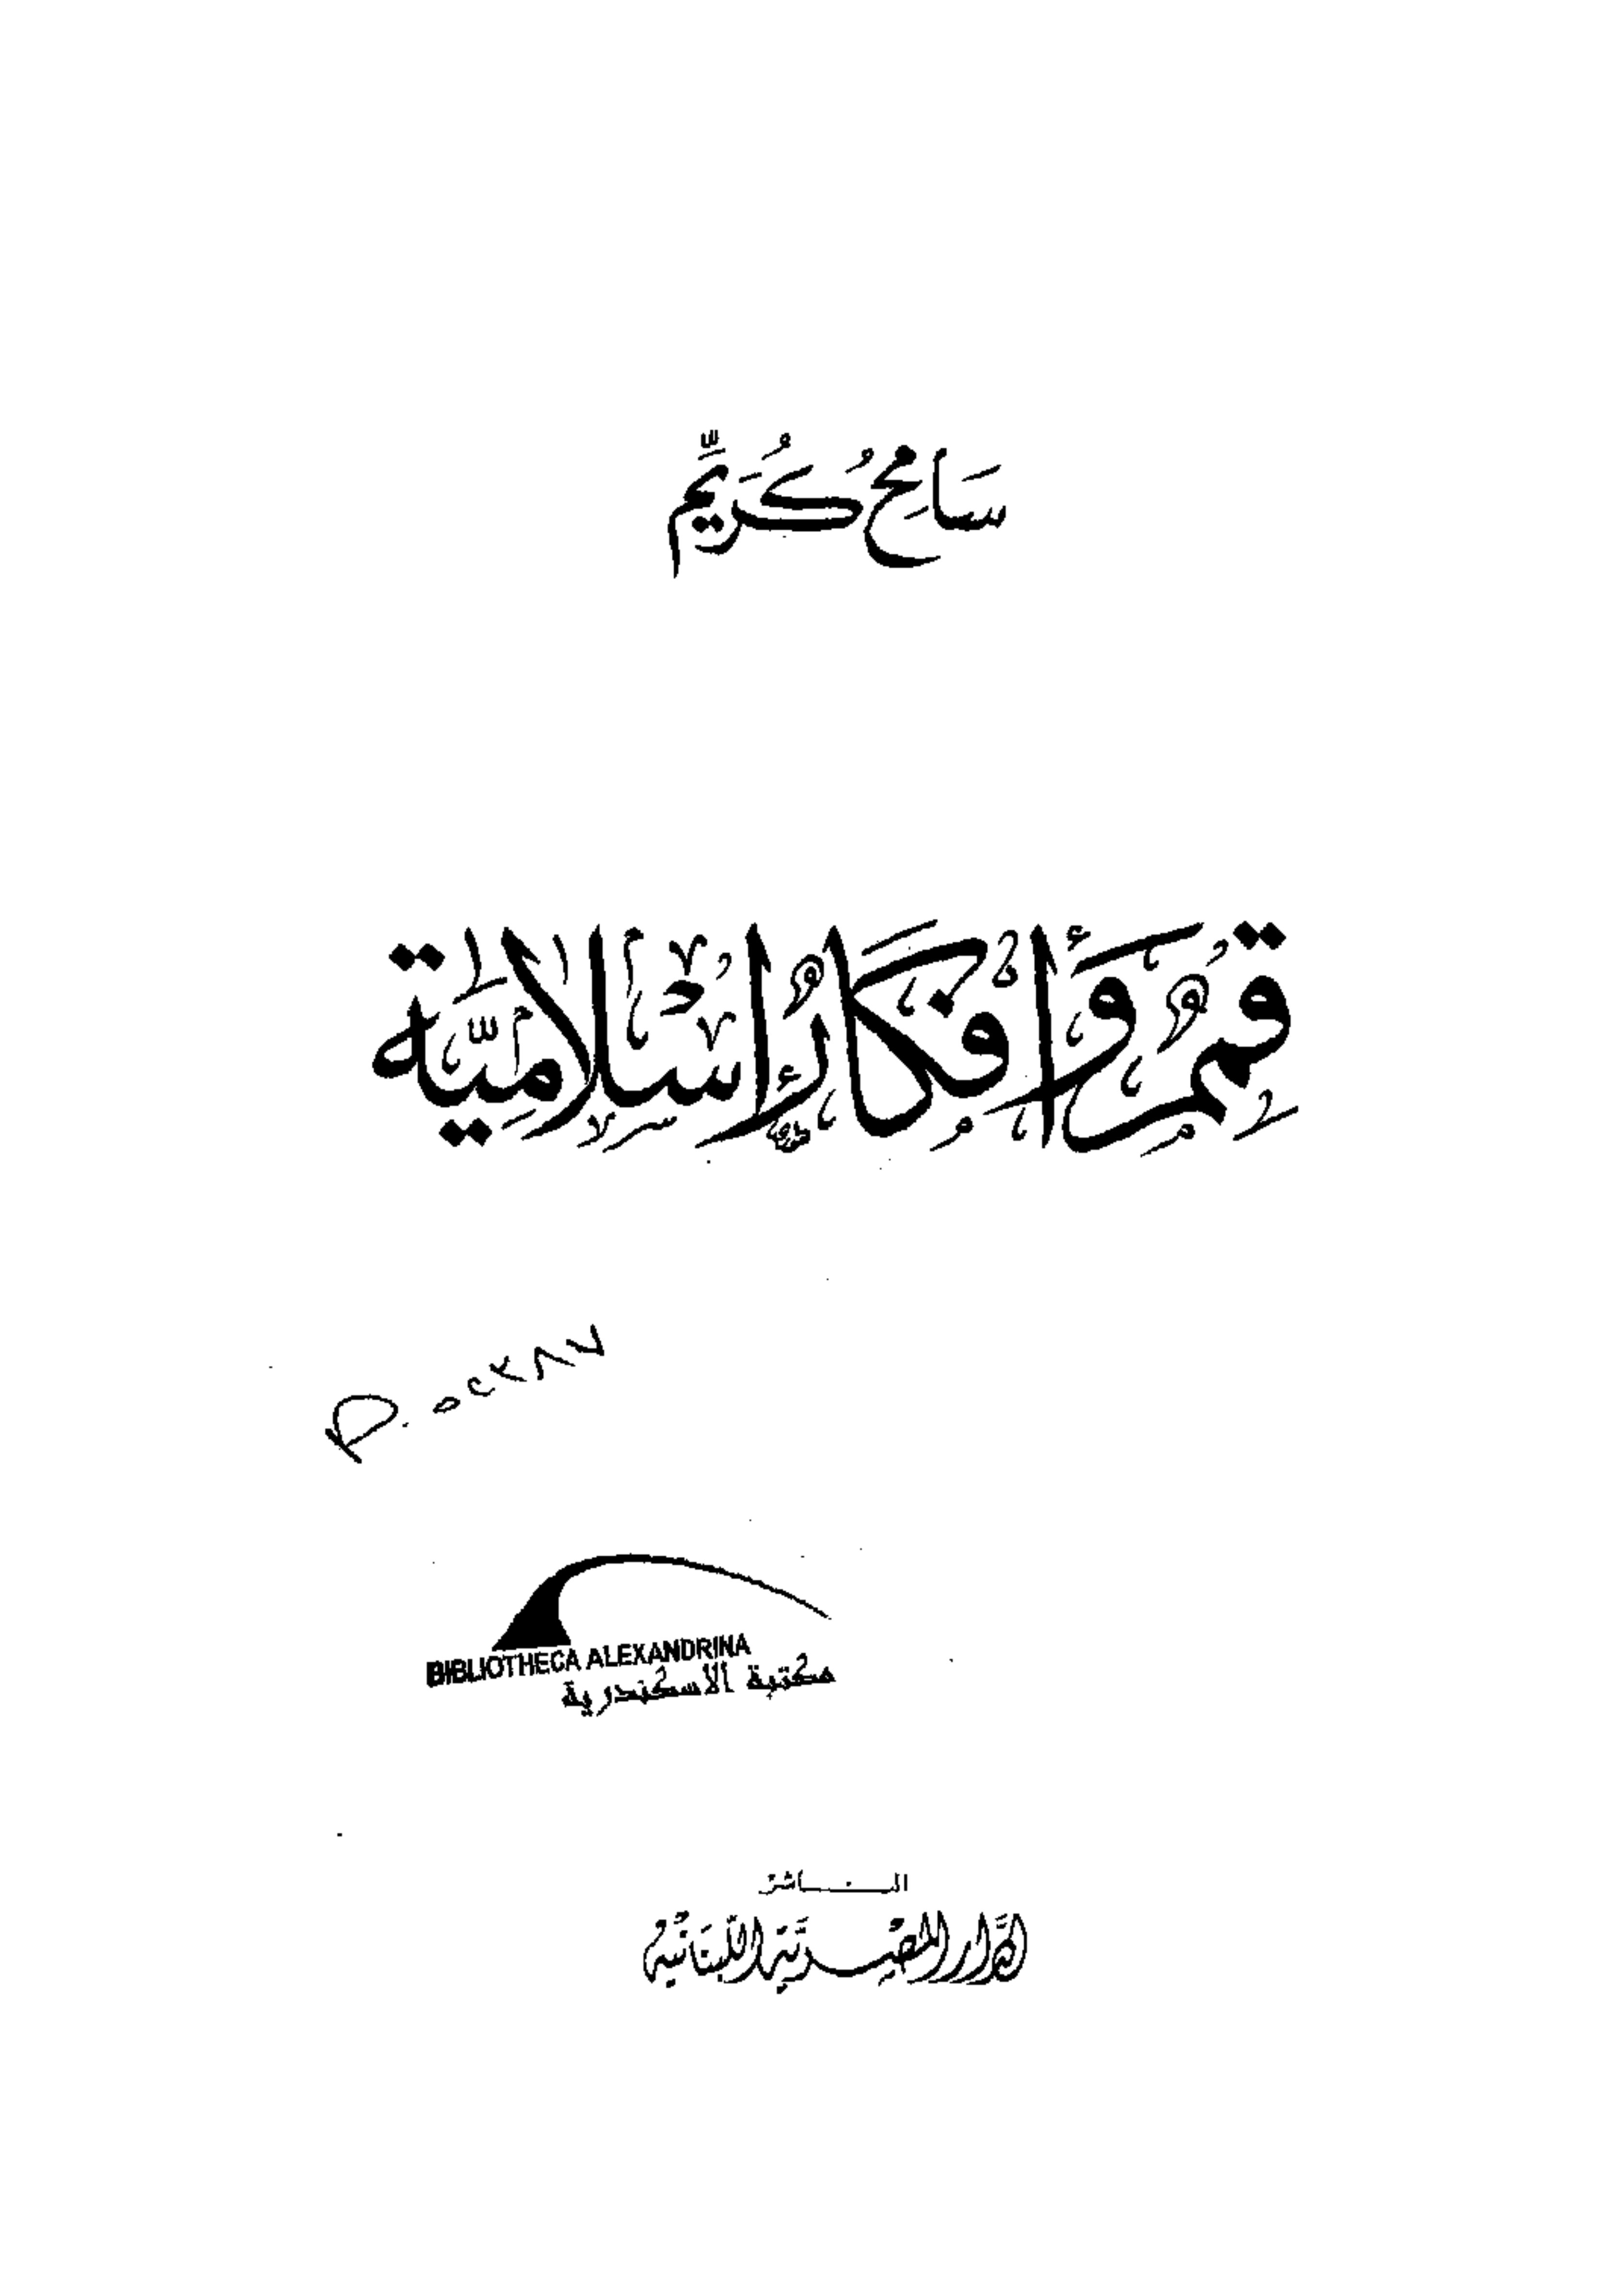 سَامِحُ كُرَيِّمْ
قِمَمٌ وَأَفْكَارٌ إِسْلَامِيَّةٌ
٥٢٣٨٧
BIBLIOTHECA ALEXANDRINA
مكتبة الاسكندرية
الناشر
الدار المصرية اللبنانية